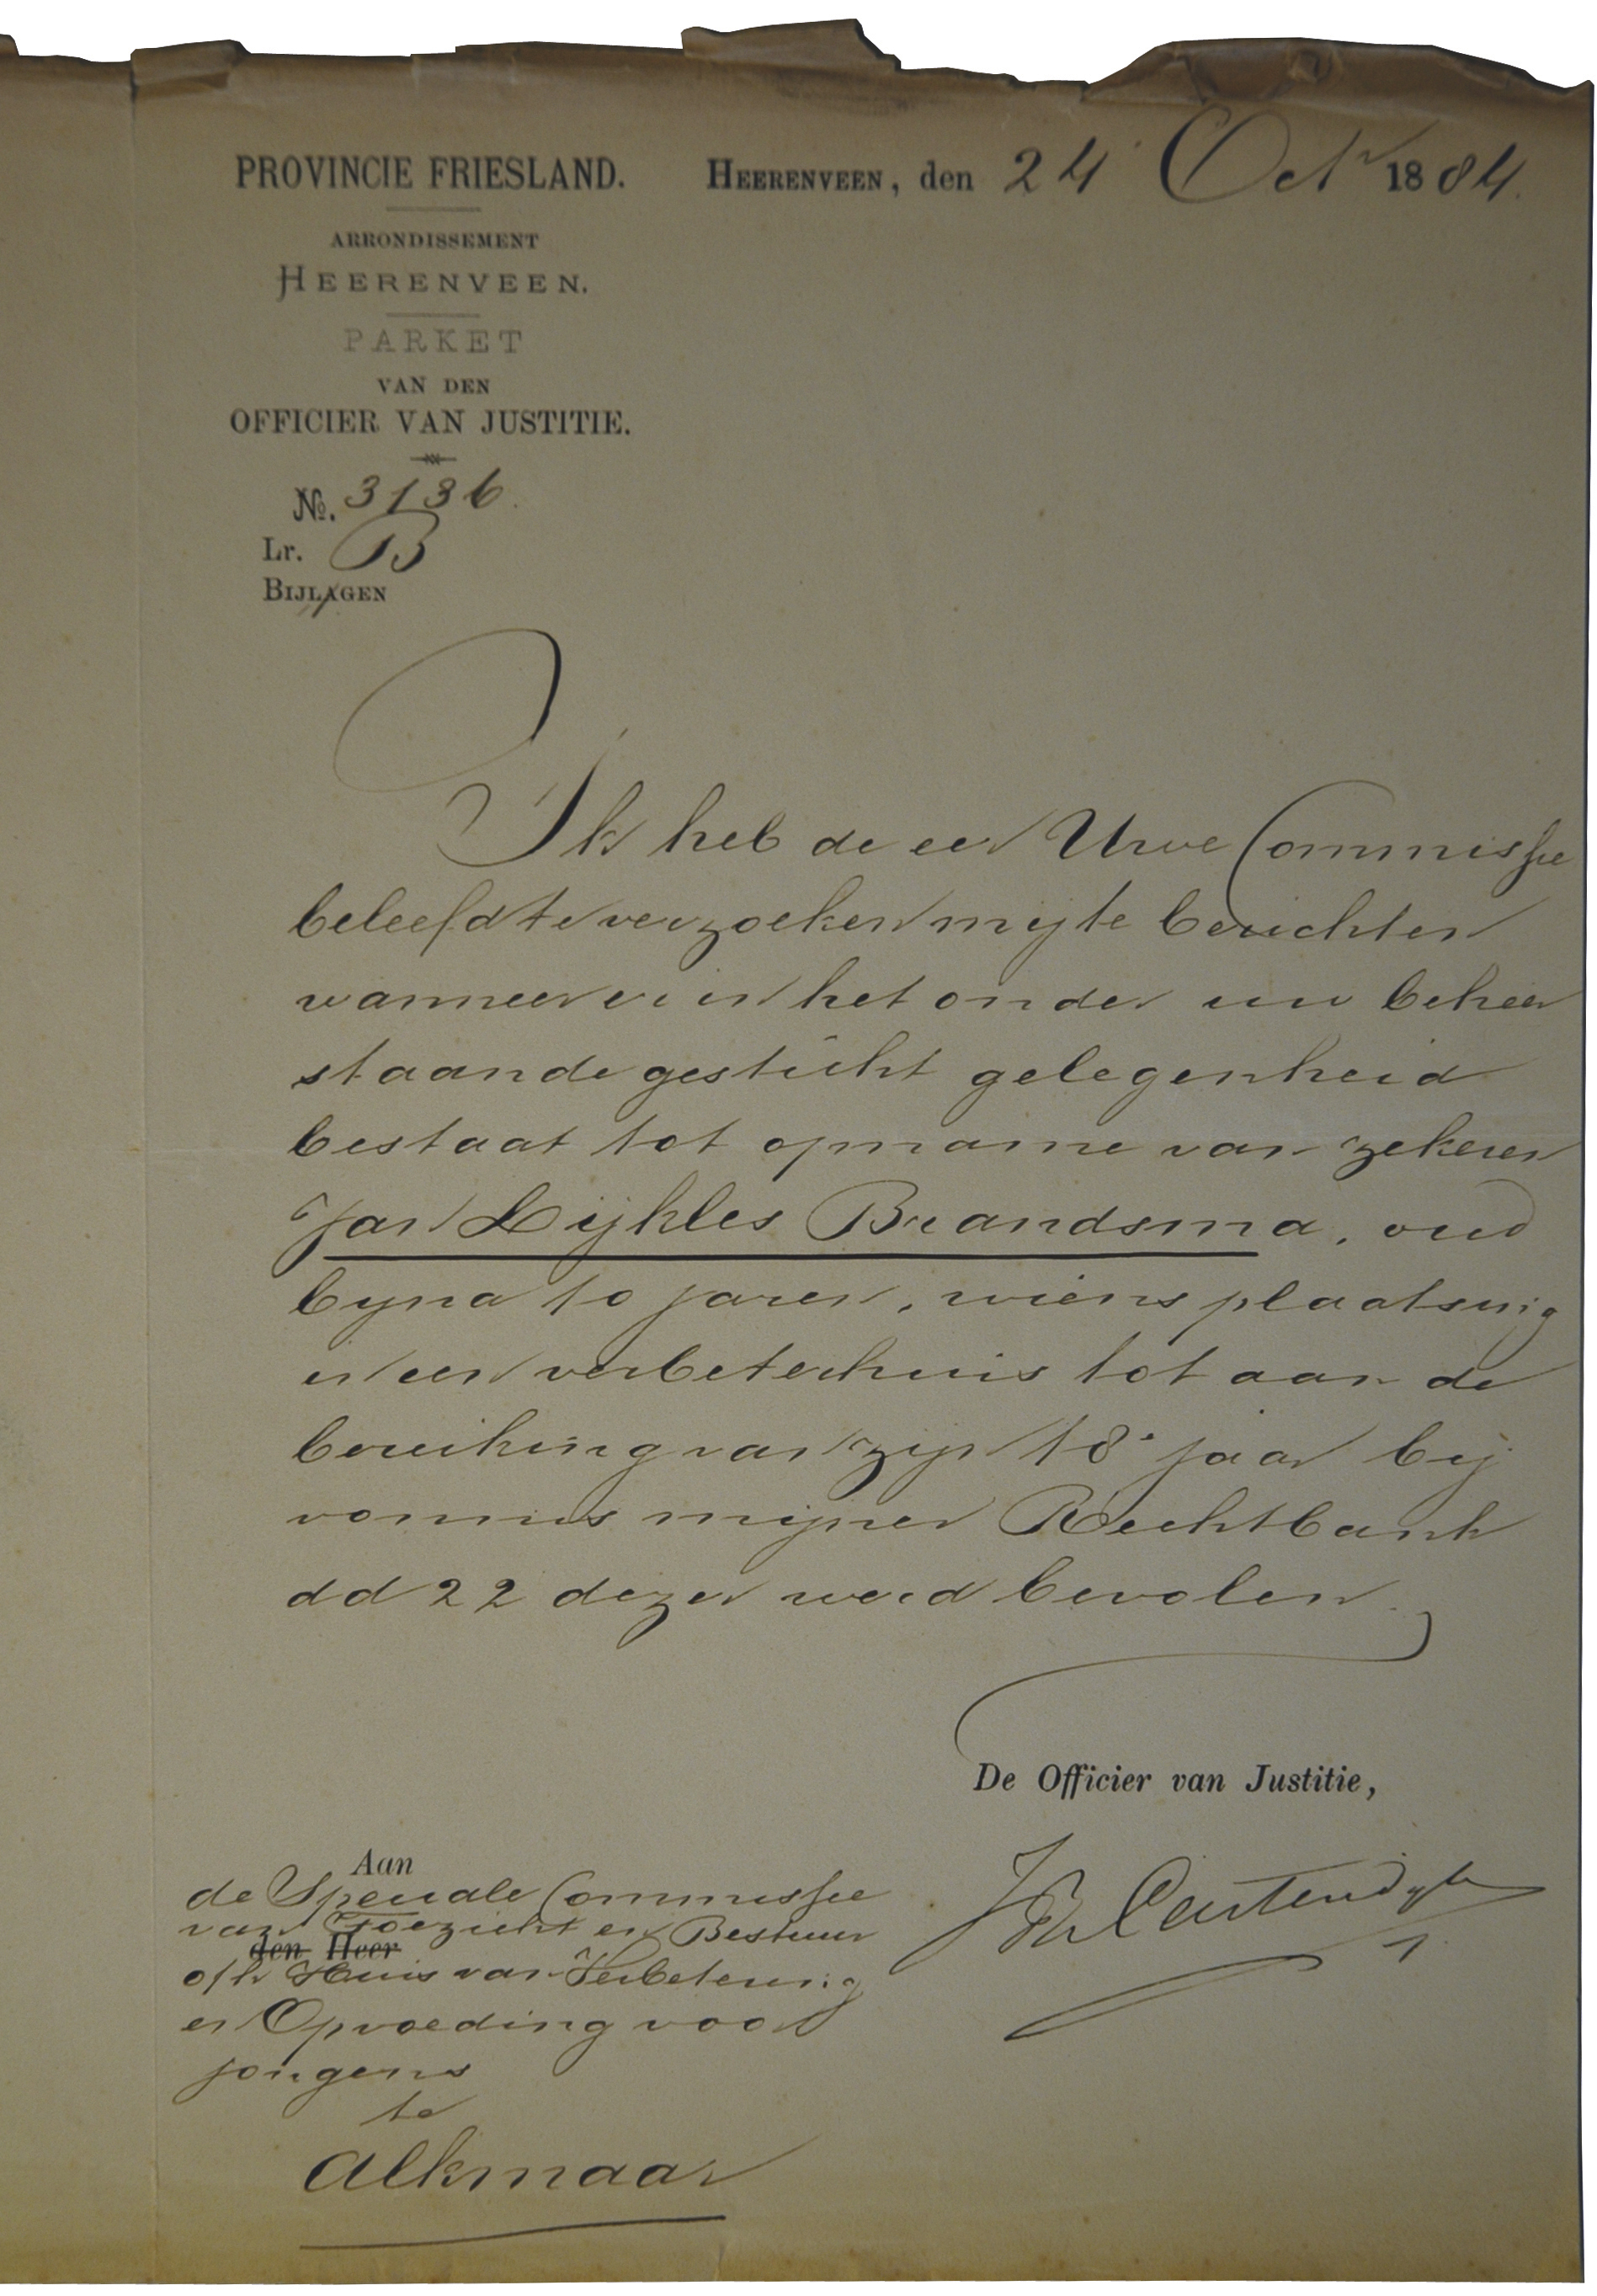 PROVINCIE FRIESLAND.
HEERENVEEN, den 24 Octr 1884.
ARRONDISSEMENT
HEERENVEEN.
PARKET
VAN DEN
OFFICIER VAN JUSTITIE.
No. 3136.
Lr. B
BIJLAGEN
Ik heb de eer Uwe Commissie
beleefd te verzoeken mij te berichten
wanneer er in het onder uw beheer
staande gesticht gelegenheid
bestaat tot opname van zekeren
Jan Lijkles Brandsma, oud
byna 10 jaren, wiens plaatsing
in een verbeterhuis tot aan de
bereiking van zijn 18e jaar bij
vonnis mijner Rechtbank
dd 22 dezer werd bevolen.
De Officier van Justitie,
Aan
de Speciale Commissie
van Toezicht en Bestuur
den Heer
o/h Huis van Verbetering
en Opvoeding voor
jongens
te
Alkmaar